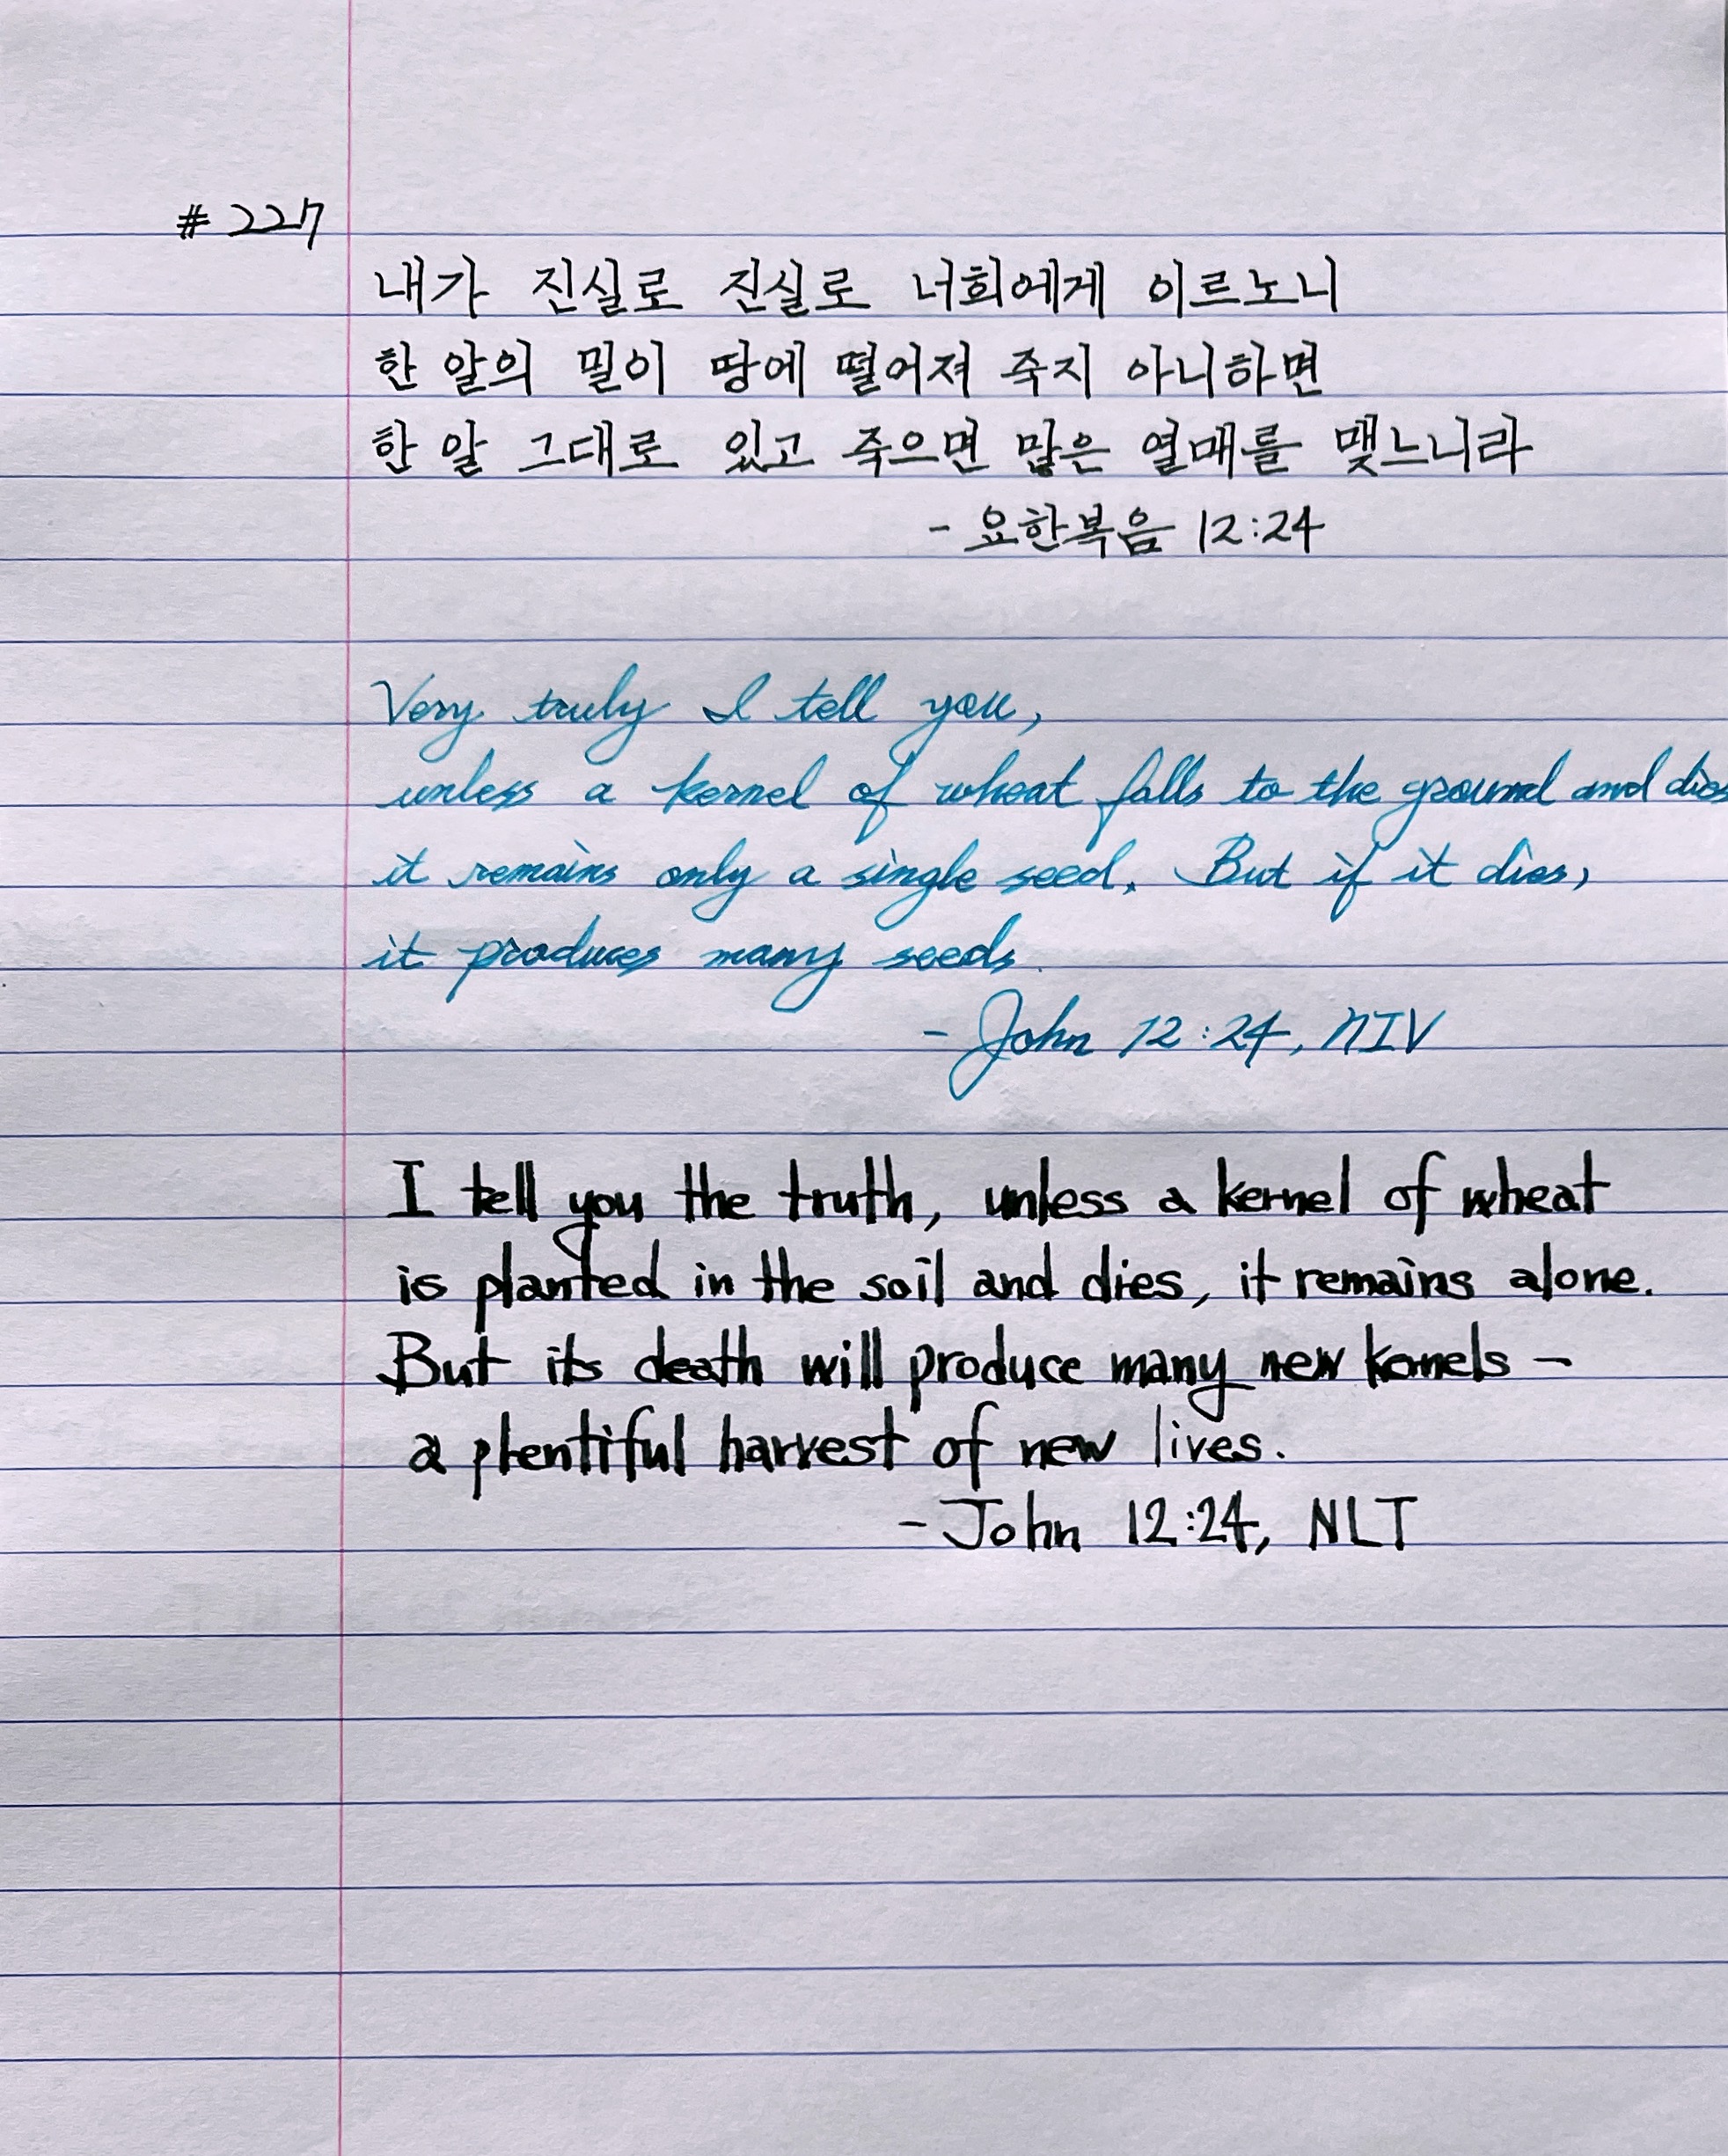 #227
내가 진실로 진실로 너희에게 이르노니
한 알의 밀이 땅에 떨어져 죽지 아니하면
한 알 그대로 있고 죽으면 많은 열매를 맺느니라
- 요한복음 12:24
Very truly I tell you,
unless a kernel of wheat falls to the ground and dies
it remains only a single seed. But if it dies,
it produces many seeds.
- John 12:24, NIV
I tell you the truth, unless a kernel of wheat
is planted in the soil and dies, it remains alone.
But its death will produce many new kernels -
a plentiful harvest of new lives.
- John 12:24, NLT